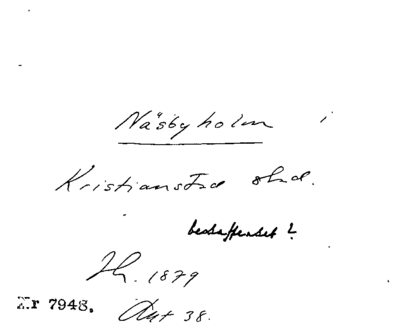 Näsbyholm i
Kristianstad stad.
beskaffenhet?
Th. 1879
Nr 7948. Aut 38.